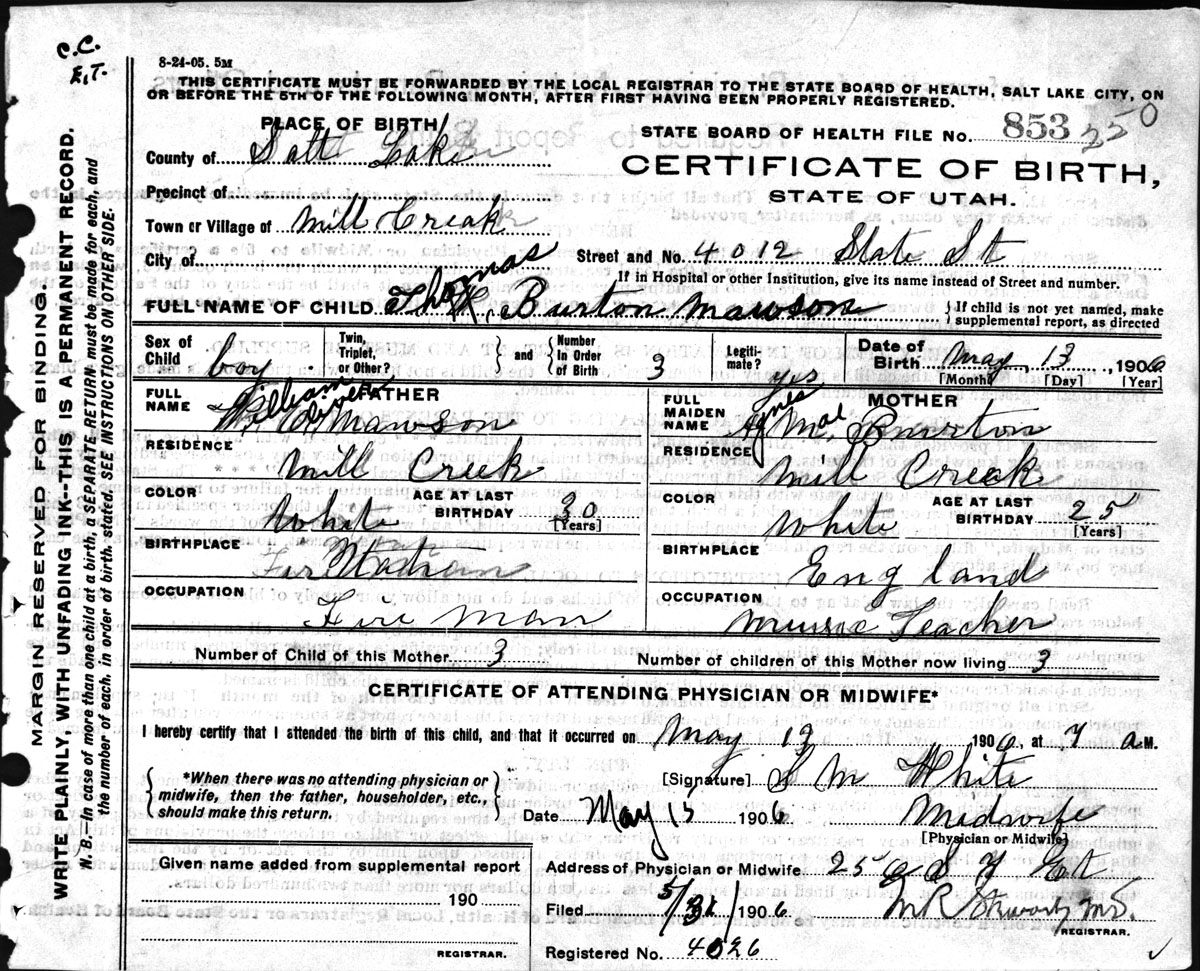 C.C.
E.T.
8-24-05. 5M
THIS CERTIFICATE MUST BE FORWARDED BY THE LOCAL REGISTRAR TO THE STATE BOARD OF HEALTH, SALT LAKE CITY, ON
OR BEFORE THE 5TH OF THE FOLLOWING MONTH, AFTER FIRST HAVING BEEN PROPERLY REGISTERED.
MARGIN RESERVED FOR BINDING.
WRITE PLAINLY, WITH UNFADING INK--THIS IS A PERMANENT RECORD.
N. B.--In case of more than one child at a birth, a SEPARATE RETURN must be made for each, and
the number of each, in order of birth, stated. SEE INSTRUCTIONS ON OTHER SIDE.
PLACE OF BIRTH
County of Salt Lake
Precinct of
Town or Village of Mill Creak
City of
STATE BOARD OF HEALTH FILE NO. 853 250
CERTIFICATE OF BIRTH,
STATE OF UTAH.
Street and No. 4012 State St
If in Hospital or other Institution, give its name instead of Street and number.
FULL NAME OF CHILD Thomas Burton Mawson
If child is not yet named, make
supplemental report, as directed
Sex of Child boy Twin, Triplet, or Other? and Number In Order of Birth 3 Legiti-mate? yes Date of Birth May 13 1906
[Month] [Day] [Year]
FATHER
FULL NAME William Mawson
RESIDENCE
Mill Creek
COLOR White AGE AT LAST BIRTHDAY 30
[Years]
BIRTHPLACE
OCCUPATION
Fire Man
MOTHER
FULL MAIDEN NAME Agnes Mae Burton
RESIDENCE
Mill Creek
COLOR White AGE AT LAST BIRTHDAY 25
[Years]
BIRTHPLACE
England
OCCUPATION
Music Teacher
Number of Child of this Mother 3 Number of children of this Mother now living 3
CERTIFICATE OF ATTENDING PHYSICIAN OR MIDWIFE*
I hereby certify that I attended the birth of this child, and that it occurred on May 13 1906, at 7 a M.
*When there was no attending physician or
midwife, then the father, householder, etc.,
should make this return.
[Signature] S M White
Date May 15 1906 Midwife
[Physician or Midwife]
Given name added from supplemental report
190
REGISTRAR.
Address of Physician or Midwife 25
Filed 5/31/1906 M R Stewart, M.D.
REGISTRAR.
Registered No. 4026